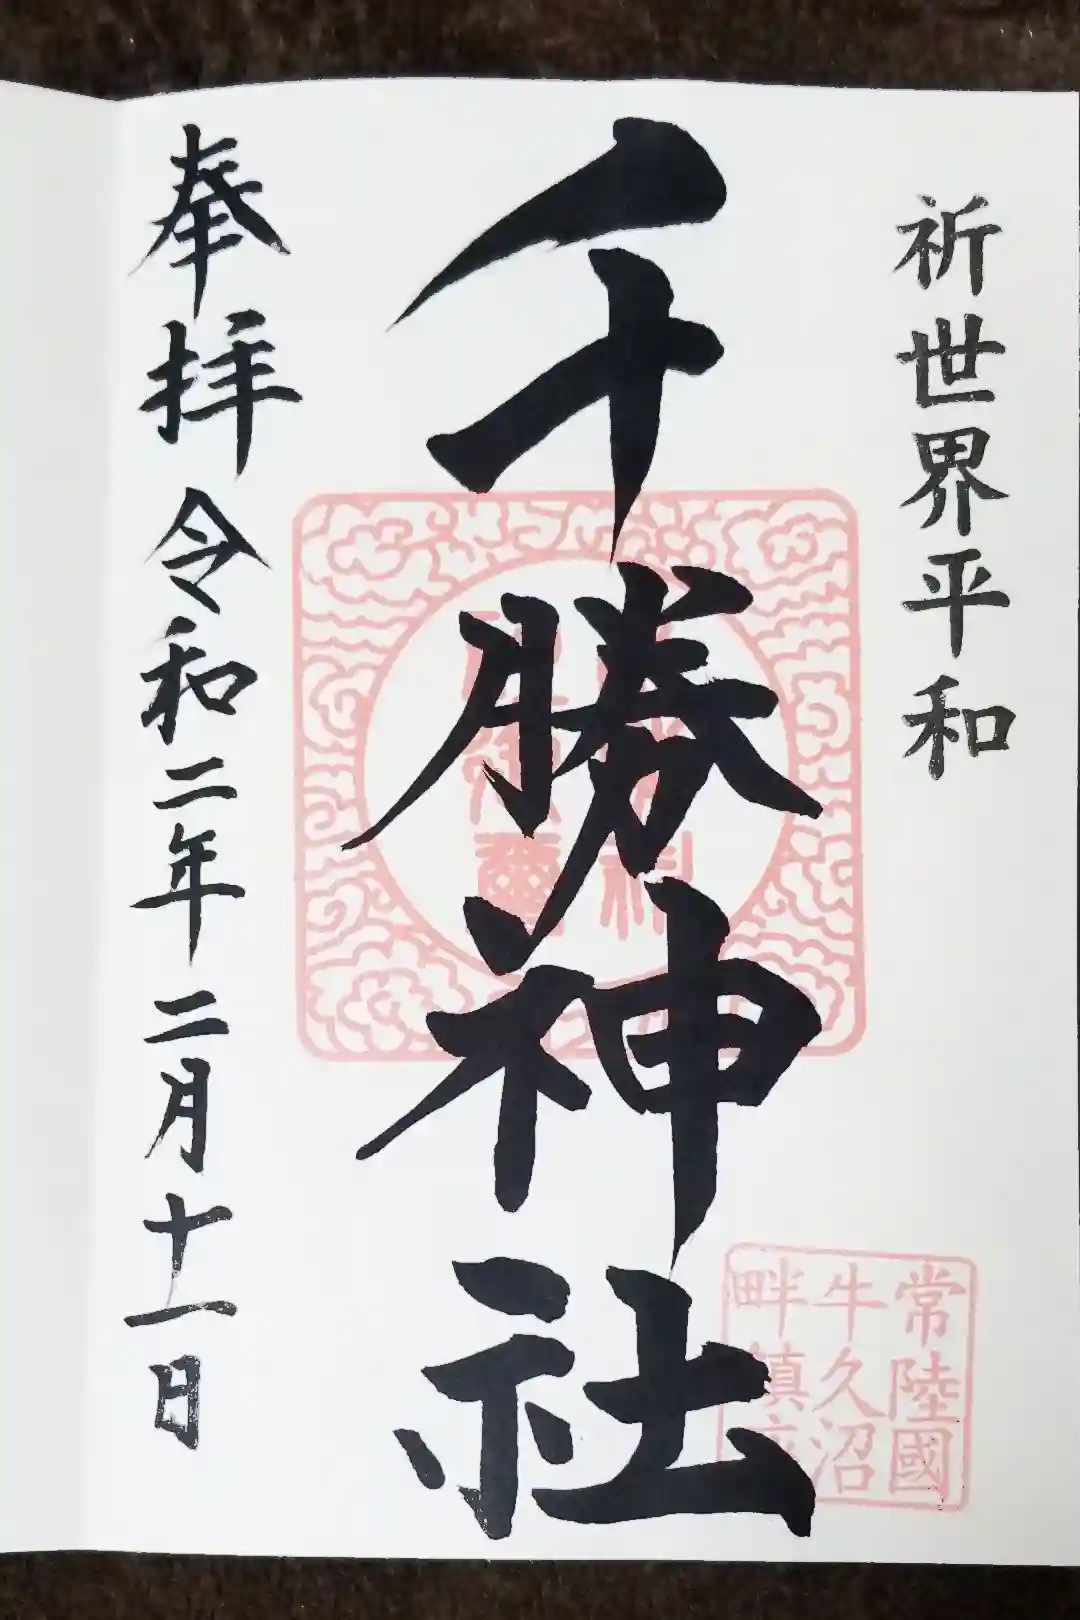 祈世界平和
千勝神社
奉拝 令和二年二月十一日
常陸國
牛久沼
畔鎮座